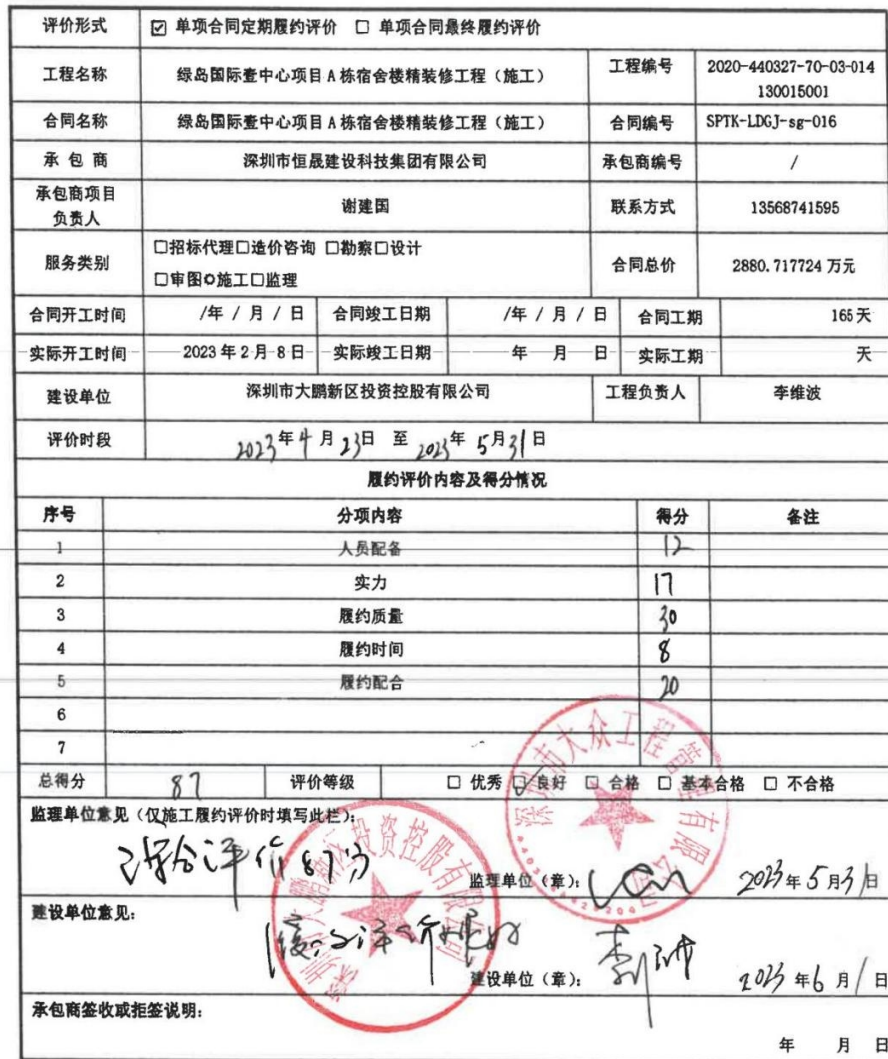 评价形式 ☑ 单项合同定期履约评价 □ 单项合同最终履约评价
工程名称 绿岛国际壹中心项目A栋宿舍楼精装修工程（施工） 工程编号 2020-440327-70-03-014
130015001
合同名称 绿岛国际壹中心项目A栋宿舍楼精装修工程（施工） 合同编号 SPTK-LDGJ-sg-016
承包商 深圳市恒晟建设科技集团有限公司 承包商编号 /
承包商项目
负责人 谢建国 联系方式 13568741595
服务类别 □招标代理□造价咨询 □勘察□设计
□审图✪施工□监理 合同总价 2880.717724 万元
合同开工时间 /年 / 月 / 日 合同竣工日期 /年 / 月 / 日 合同工期 165天
实际开工时间 2023年2月8日 实际竣工日期 年 月 日 实际工期 天
建设单位 深圳市大鹏新区投资控股有限公司 工程负责人 李维波
评价时段 2023年4月23日 至 2023年5月31日
履约评价内容及得分情况
序号 分项内容 得分 备注
1 人员配备 12
2 实力 17
3 履约质量 30
4 履约时间 8
5 履约配合 20
6
7
总得分 87 评价等级 □ 优秀 ☑ 良好 □ 合格 □ 基本合格 □ 不合格
监理单位意见（仅施工履约评价时填写此栏）：
综合评价87分
监理单位（章）： 2023年5月31日
建设单位意见：
履约评价良好
建设单位（章）： 2023年6月1日
承包商签收或拒签说明：
年 月 日
深圳市大众工程管理有限公司
深圳市大鹏新区投资控股有限公司